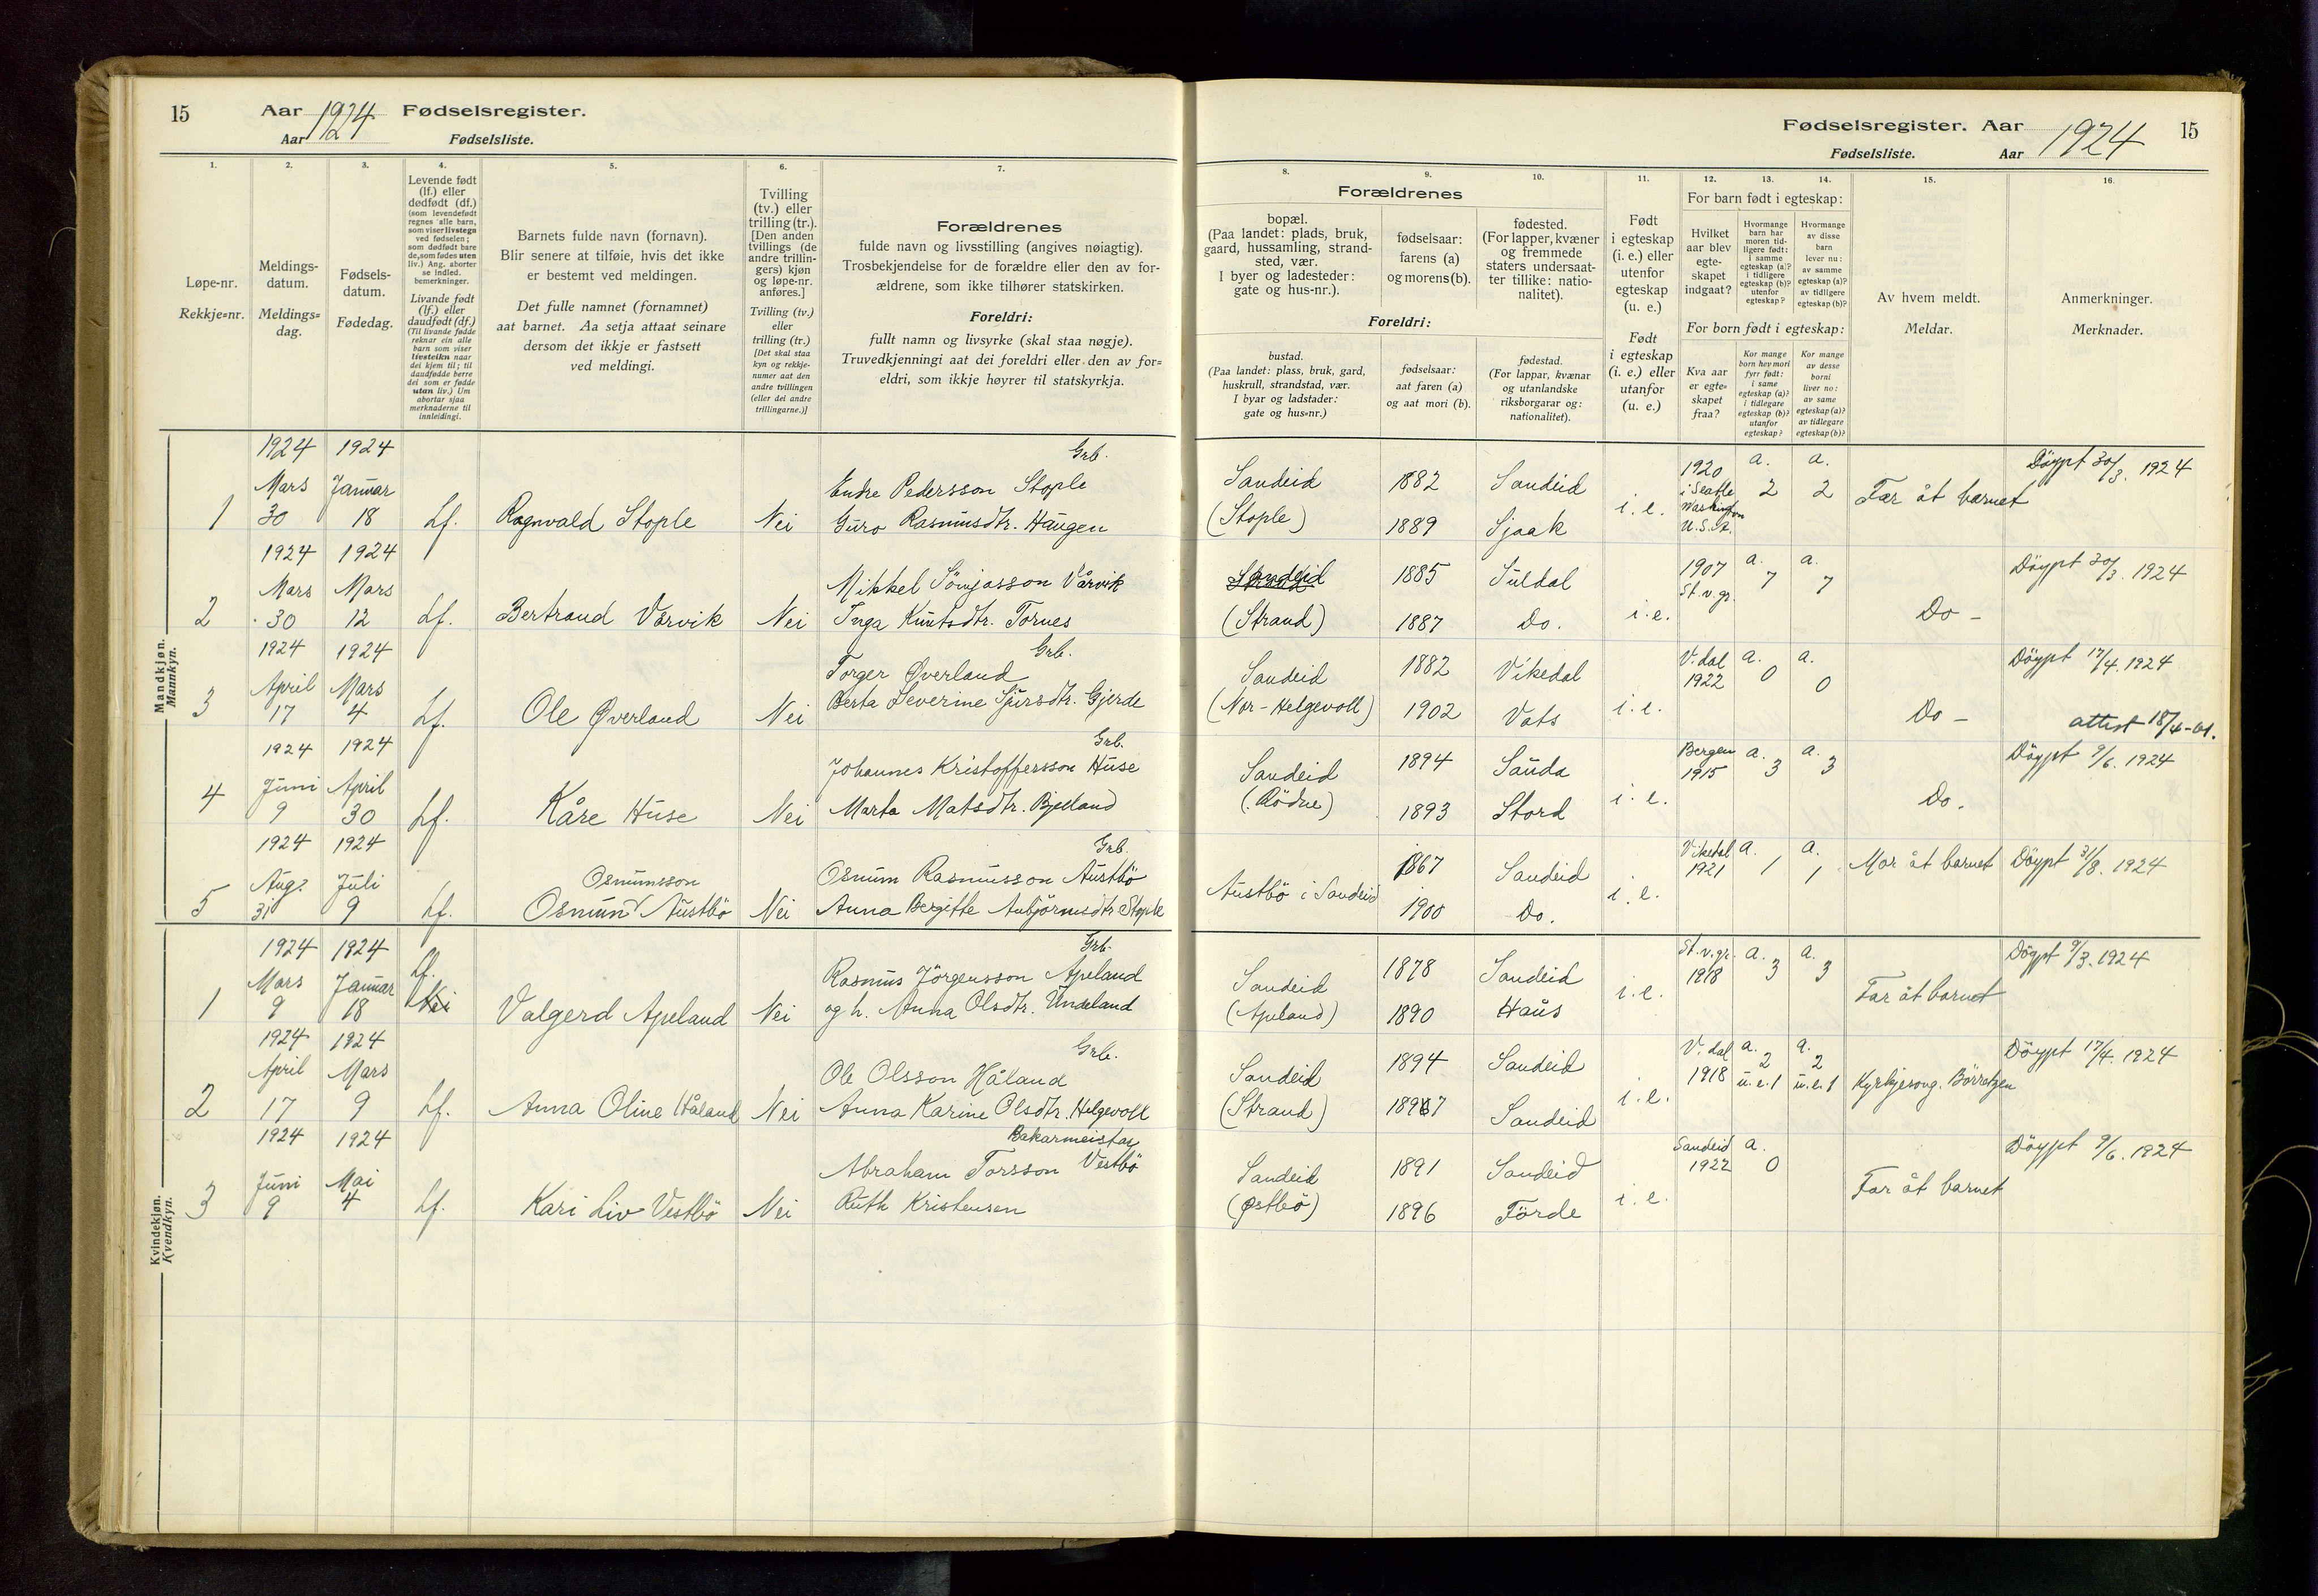 15 Aar 1924 Fødselsregister.
Aar Fødselsliste.
1. 2. 3. 4. 5. 6. 7.
Løpe-nr.
Rekkje=nr.
Meldings-
datum.
Meldings=
dag.
Fødsels-
datum.
Fødedag.
Levende født
(lf.) eller
dødfødt (df.)
(som levendefødt
regnes alle barn,
som viser livstegn
ved fødselen;
som dødfødt bare
de, som fødes uten
liv.) Ang. aborter
se indled.
bemerkninger.
Livande født
(lf.) eller
daudfødt (df.)
(Til livande fødde
reknar ein alle
barn som viser
livsteikn naar
dei kjem til; til
daudfødde berre
dei som er fødde
utan liv.) Um
abortar sjaa
merknaderne til
innleidingi.
Barnets fulde navn (fornavn).
Blir senere at tilføie, hvis det ikke
er bestemt ved meldingen.
Det fulle namnet (fornamnet)
aat barnet. Aa setja attaat seinare
dersom det ikkje er fastsett
ved meldingi.
Tvilling
(tv.) eller
trilling (tr.).
[Den anden
tvillings (de
andre trillin-
gers) kjøn
og løpe-nr.
anføres.]
Tvilling (tv.)
eller
trilling (tr.)
[Det skal staa
kyn og rekkje-
numer aat den
andre tvillingen
(eller dei andre
trillingarne.)]
Forældrenes
fulde navn og livsstilling (angives nøiagtig).
Trosbekjendelse for de forældre eller den av for-
ældrene, som ikke tilhører statskirken.
Foreldri:
fullt namn og livsyrke (skal staa nøgje).
Truvedkjenningi aat dei foreldri eller den av for=
eldri, som ikkje høyrer til statskyrkja.
Mandkjøn.
Mannkyn.
1924 1924 Grb.
Mars Januar Endre Pedersson Stople
1 30 18 Lf. Ragnvald Stople Nei Guro Rasmusdtr. Haugen
1924 1924
Mars Mars Mikkel Vårvik
2 30 12 Lf. Bertrand Vårvik Nei Inga Knutsdtr. Tornes
1924 1924 Grb.
April Mars Torger Øverland
3 17 4 Lf. Ole Øverland Nei Berta Severine Sjursdtr. Gjerde
1924 1924 Grb.
Juni April Johannes Kristoffersson Huse
4 9 30 Lf. Kåre Huse Nei Marta Matsdtr. Bjelland
1924 1924 Grb.
Aug. Juli Osmunsson Osmun Rasmusson Austbö
5 31 9 Lf. Osmun Austbö Nei Anna Bergitte Stople
Kvindekjøn.
Kvendkyn.
1924 1924 Lf. Grb.
Mars Januar Rasmus Jörgensson Apeland
1 9 18 Nei Valgerd Apeland Nei og h. Anna Olsdtr. Undeland
1924 1924 Grb.
April Mars Ole Olsson Håland
2 17 9 Lf. Anna Oline Håland Nei Anna Karine Olsdtr. Helgevoll
1924 1924 Bakarmeistar
Juni Mai Abraham Torsson Vestbö
3 9 4 Lf. Kari Liv Vestbö Nei Ruth Kristensen
Fødselsregister. Aar 1924 15
Fødselsliste. Aar
8. 9. 10. 11. 12. 13. 14. 15. 16.
Forældrenes
bopæl.
(Paa landet: plads, bruk,
gaard, hussamling, strand-
sted, vær.
I byer og ladesteder:
gate og hus-nr.).
fødselsaar:
farens (a)
og morens (b).
fødested.
(For lapper, kvæner
og fremmede
staters undersaat-
ter tillike: natio-
nalitet).
Foreldri:
bustad.
(Paa landet: plass, bruk, gard,
huskrull, strandstad, vær.
I byar og ladstader:
gate og hus-nr.)
fødselsaar:
aat faren (a)
og aat mori (b).
fødestad.
(For lappar, kvænar
og utanlandske
riksborgarar og:
nationalitet).
Født
i egteskap
(i. e.) eller
utenfor
egteskap
(u. e.)
Født
i egteskap
(i. e.) eller
utanfor
(u. e.)
For barn født i egteskap:
Hvilket
aar blev
egte-
skapet
indgaat?
Hvormange
barn har
moren tid-
ligere født:
i samme
egteskap (a)?
i tidligere
egteskap (b)?
utenfor
egteskap?
Hvormange
av disse
barn
lever nu:
av samme
egteskap (a)?
av tidligere
egteskap (b)?
For born født i egteskap:
Kva aar
er egte=
skapet
fraa?
Kor mange
born hev mori
fyrr født:
i same
egteskap (a)?
i tidlegare
egteskap (b)?
utanfor
egteskap?
Kor mange
av desse
borni
liver no:
av same
egteskap (a)?
av tidlegare
egteskap (b)?
Av hvem meldt.
Meldar.
Anmerkninger.
Merknader.
Sandeid 1882 Sandeid 1920 a. 2 a. 2 Far åt barnet Döypt 30/3. 1924
(Stople) 1889 Sjaak i. e. i Seatle Washington U.S.A.
Sandeid 1885 Suldal 1907 a. 7 a. 7 Döypt 30/3. 1924
(Strand) 1887 Do. i. e. St. v. gr. Do -
Sandeid 1882 Vikedal V. dal a. 0 a. 0 Döypt 17/4. 1924
(Nor-Helgevoll) 1902 Vats i. e. 1922 Do - attest 18/4-01.
Sandeid 1894 Sauda Bergen a. 3 a. 3 Döypt 9/6. 1924
(Rödne) 1893 Stord i. e. 1915 Do.
1867 Sandeid Vikedal a. 1 a. 1 Mor åt barnet Döypt 31/8. 1924
Austbö i Sandeid 1900 Do. i. e. 1921
Sandeid 1878 Sandeid St. v. gr. a. 3 a. 3 Döypt 9/3. 1924
(Apeland) 1890 Haus i. e. 1918 Far åt barnet
Sandeid 1894 Sandeid V. dal a. 2 a. 2 Döypt 17/4. 1924
(Strand) 1897 Sandeid i. e. 1918 u. e. 1 u. e. 1 Kyrkjesong. Börretzen
Sandeid 1891 Sandeid Sandeid a. 0 Döypt 9/6. 1924
(Østbö) 1896 Förde i. e. 1922 Far åt barnet